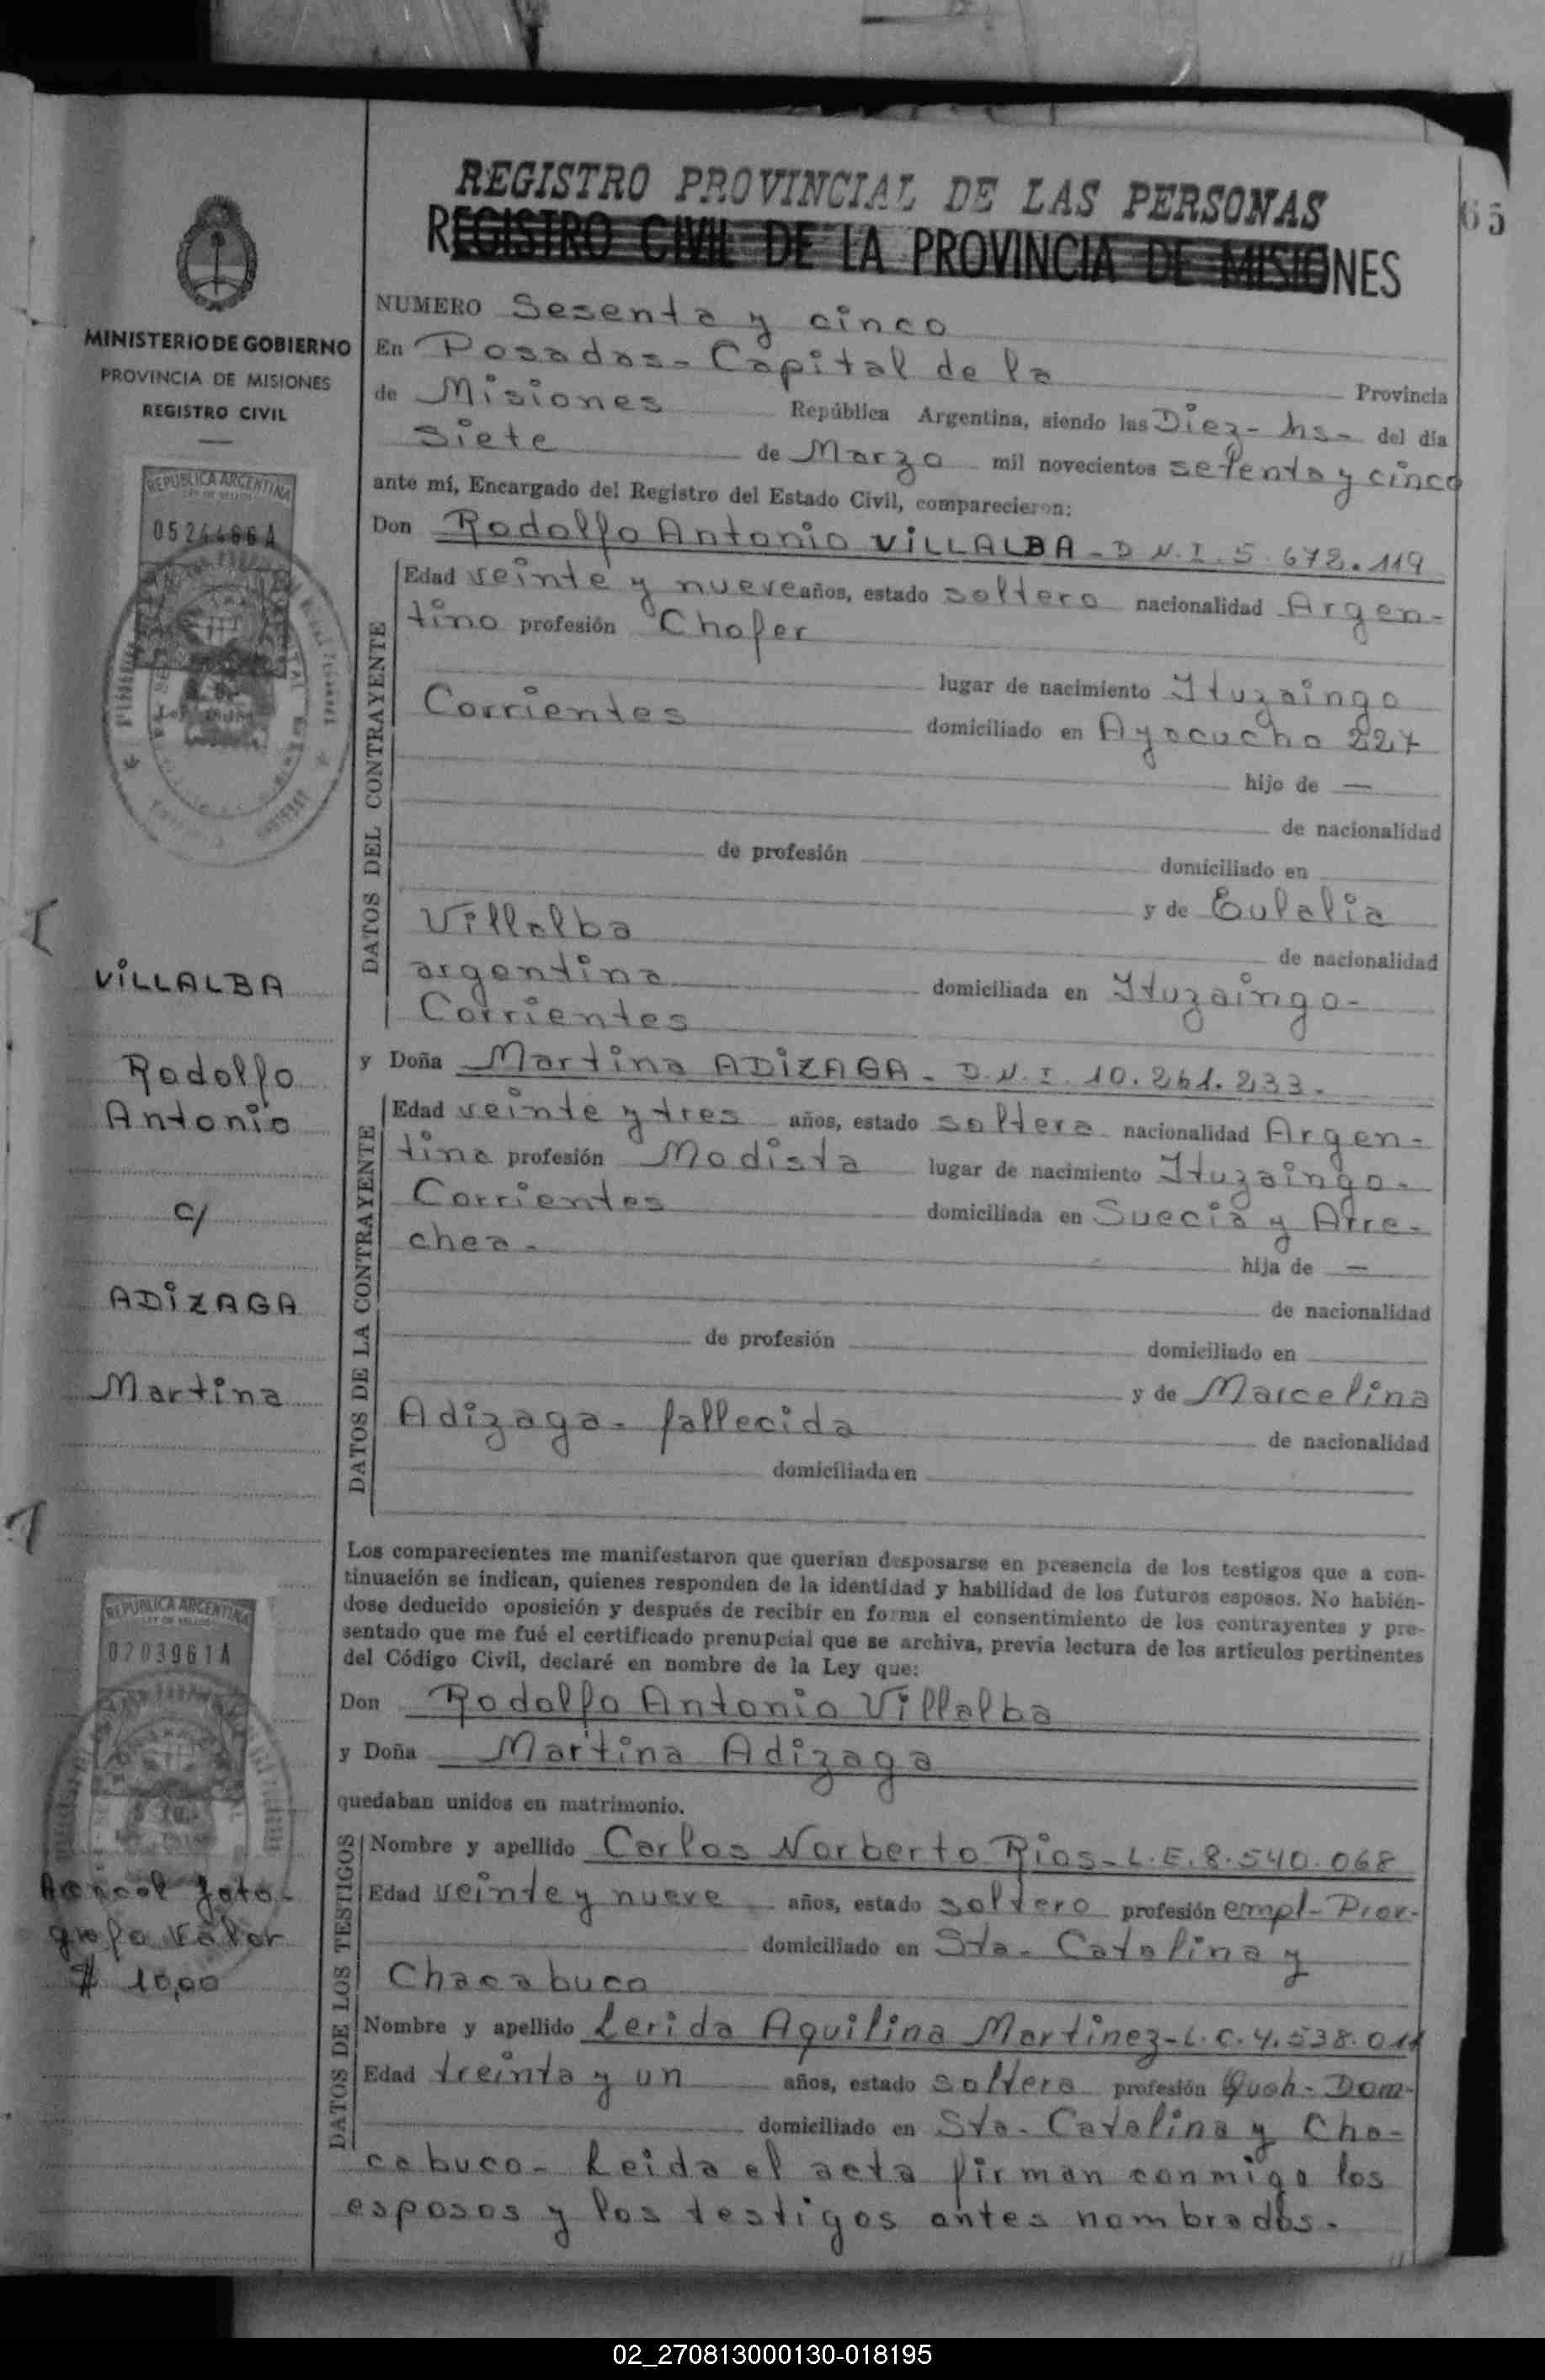 REGISTRO PROVINCIAL DE LAS PERSONAS
REGISTRO CIVIL DE LA PROVINCIA DE MISIONES
65
MINISTERIO DE GOBIERNO
PROVINCIA DE MISIONES
REGISTRO CIVIL
REPUBLICA ARGENTINA
LEY DE SELLOS
0524486A
VILLALBA
Rodolfo
Antonio
c/
ADIZAGA
Martina
REPUBLICA ARGENTINA
LEY DE SELLOS
0203961A
valor
$ 10,00
NUMERO Sesenta y cinco
En Posadas - Capital de la Provincia
de Misiones República Argentina, siendo las Diez - hs - del día
Siete de Marzo mil novecientos setenta y cinco
ante mí, Encargado del Registro del Estado Civil, comparecieron:
Don Rodolfo Antonio VILLALBA - D.N.I. 5.672.119
DATOS DEL CONTRAYENTE
Edad veinte y nueve años, estado soltero nacionalidad Argen-
tino profesión Chofer
lugar de nacimiento Ituzaingo
Corrientes domiciliado en Ayacucho 227
hijo de —
de nacionalidad
de profesión domiciliado en
y de Eulalia
Villalba de nacionalidad
argentina domiciliada en Ituzaingo -
Corrientes
y Doña Martina ADIZAGA - D.N.I. 10.261.233 -
DATOS DE LA CONTRAYENTE
Edad veinte y tres años, estado soltera nacionalidad Argen-
tina profesión Modista lugar de nacimiento Ituzaingo -
Corrientes domiciliada en Suecia y Arre-
chea - hija de —
de nacionalidad
de profesión domiciliado en
y de Marcelina
Adizaga - fallecida de nacionalidad
domiciliada en
Los comparecientes me manifestaron que querían desposarse en presencia de los testigos que a con-
tinuación se indican, quienes responden de la identidad y habilidad de los futuros esposos. No habién-
dose deducido oposición y después de recibir en forma el consentimiento de los contrayentes y pre-
sentado que me fué el certificado prenupcial que se archiva, previa lectura de los artículos pertinentes
del Código Civil, declaré en nombre de la Ley que:
Don Rodolfo Antonio Villalba
y Doña Martina Adizaga
quedaban unidos en matrimonio.
DATOS DE LOS TESTIGOS
Nombre y apellido Carlos Norberto Rios - L.E. 8.540.068
Edad veinte y nueve años, estado soltero profesión empl-
domiciliado en Sta - Catalina y
Chacabuco
Nombre y apellido Lerida Aquilina Martinez - L.C. 4.538.011
Edad treinta y un años, estado soltera profesión Queh - Dom -
domiciliado en Sta - Catalina y Cha-
cabuco - Leida el acta firman conmigo los
esposos y los testigos antes nombrados -
02_270813000130-018195